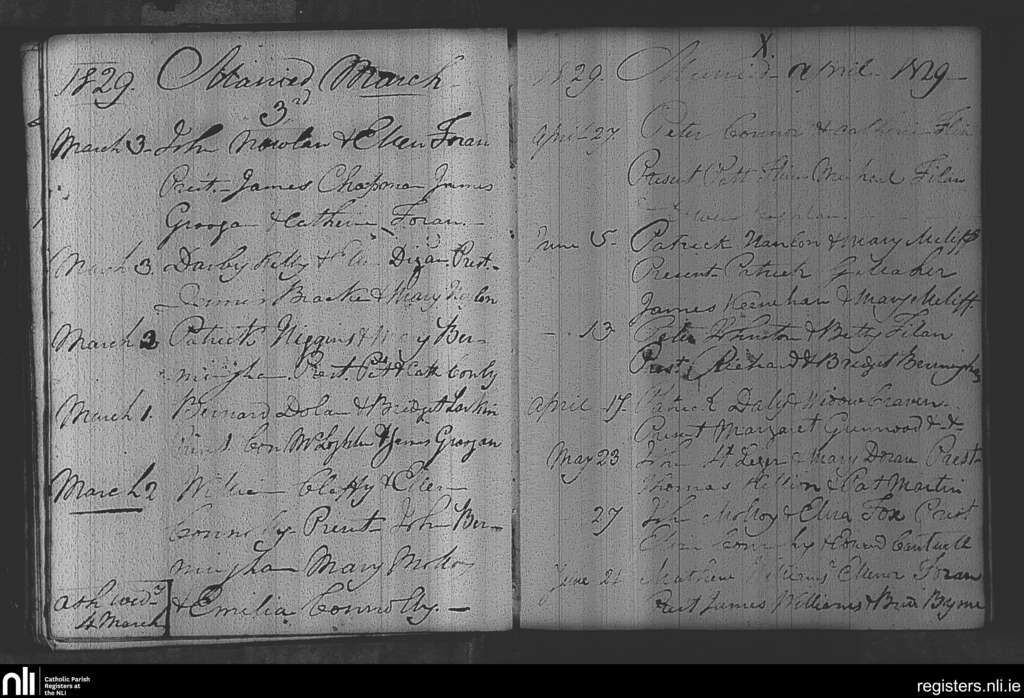 1829. Married March
3rd
March 3. John Nowlan & Ellen Foran
Prest. James Chapman James
Groogan & Catherin Foran
March 3. Darby Kelly & Digan. Prest.
Bracken & Mary
March 3 Patrick Higgins & Mary Ber-
mingham. Prest. Pat & Cath Conly
March 1. Bernard Dolan & Bridget Larkin
Con McLoghlin & James Groogan
March 2 William Claffy & Ellen
Connolly Present John Ber-
mingham Mary Molloy
Ash Wed.
4 March & Emilia Connolly. —
X.
1829. Married April 1829
April 27. Peter Connor & Catherin
Present Patt Michael Filan
June 5. Patrick Hanlon & Mary Meliff
Present Patrick Geleaher
James Keenehan & Mary Meliff
- 13 Peter & Betty Filan
Prest. Richard & Bridget Bermingham
April 17. Patrick Daly & Widow Craven
Present Margaret & &
May 23 John St Leger & Mary Doran Prest
Thomas & Pat Martin
27 John Molloy & Eliza Fox Prest
& Edward Cantwell
June 21 Mathew Williams Ellenor Foran
Prest James Williams & Byrne
nli
Catholic Parish
Registers at
the NLI
registers.nli.ie